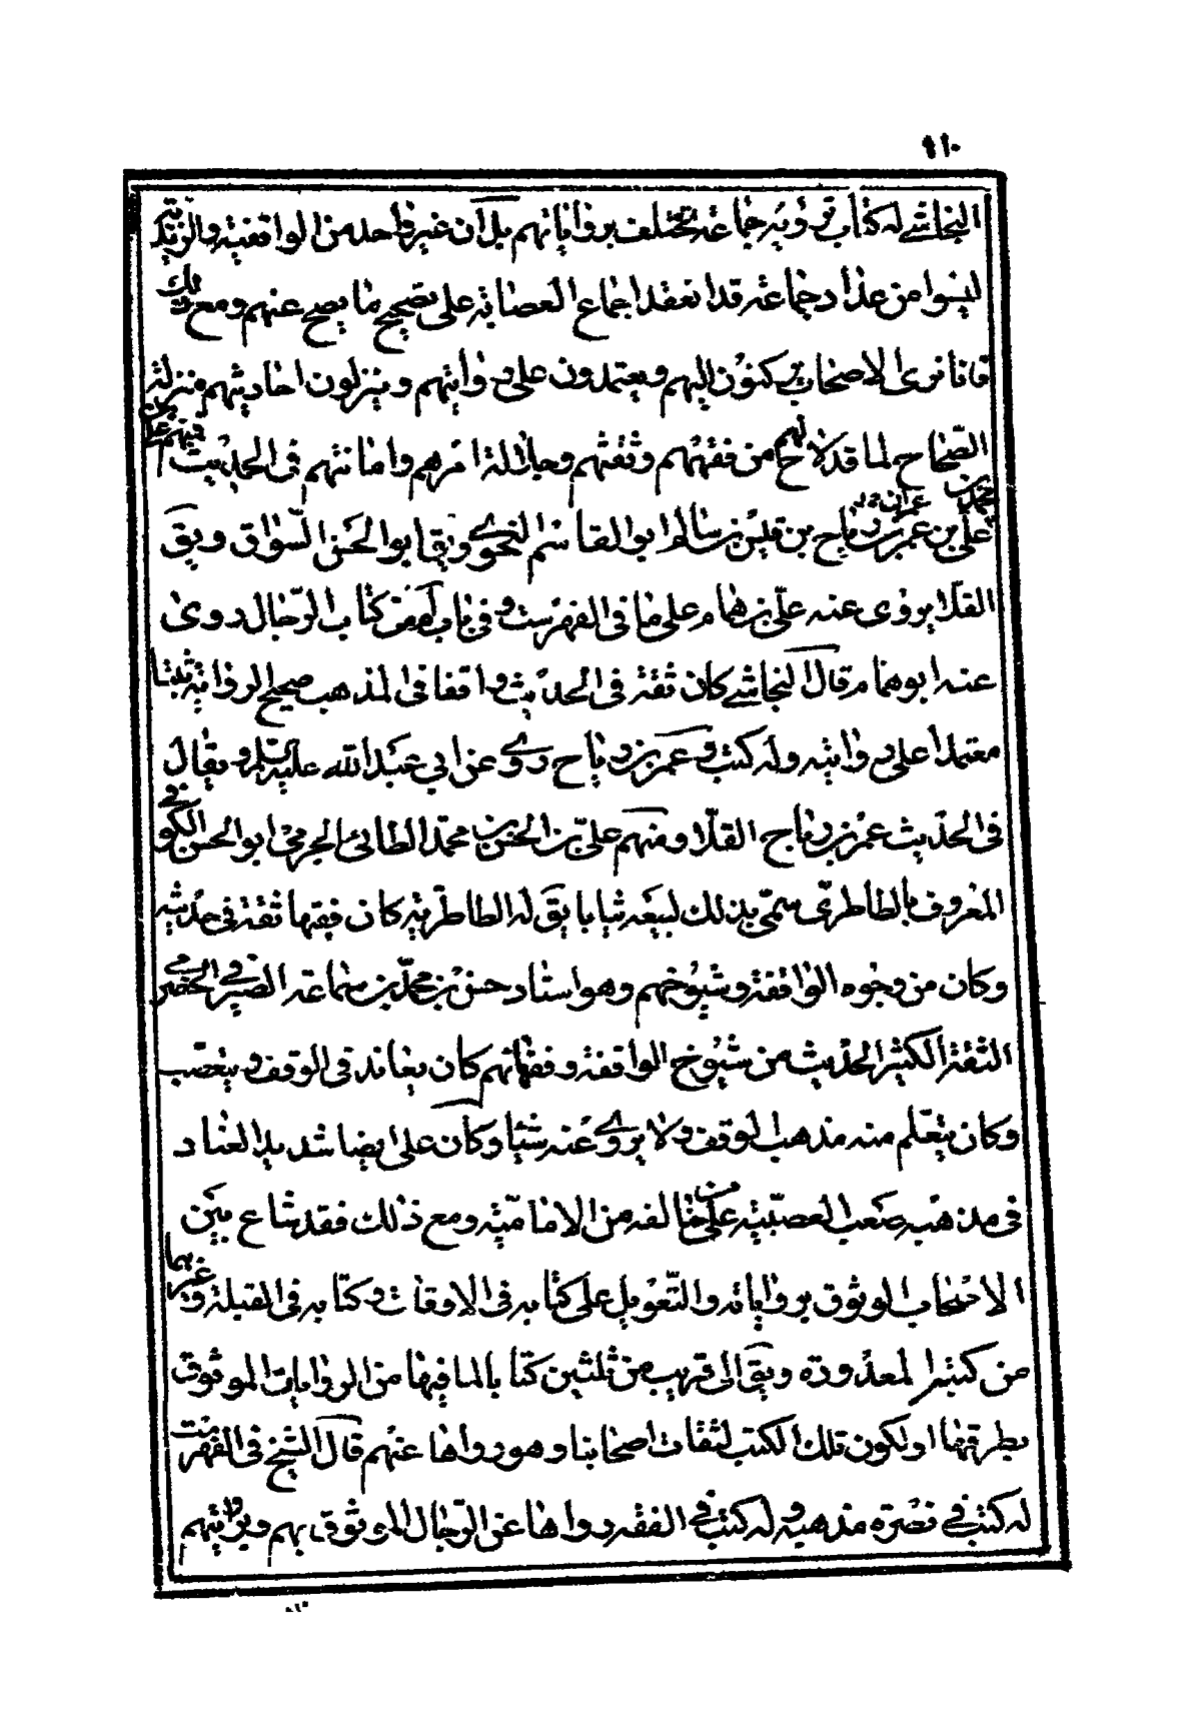 ١١٠
النجاشي له كتاب يرويه جماعة تختلف برواياتهم بل ان غير واحد من الواقفية والزيدية
ليسوا من عداد جماعة قد انعقد اجماع العصابة على تصحيح ما يصح عنهم ومع ذلك
فانا نرى الاصحاب يركنون اليهم ويعتمدون على روايتهم وينزلون احاديثهم منزلة
الصحاح لما قد لاح لهم من فقههم وثقتهم وجلالة امرهم وامانتهم في الحديث فمنهم علي بن
محمد بن علي بن عمر بن رباح بن قيس بن سالم ابو القاسم النحوي ويقا ابو الحسن السواق ويق
القلا يروى عنه علي بن همام على ما في الفهرست وفي باب لم من كتاب الرجال روى
عنه ابو همام قال النجاشي كان ثقة في الحديث واقفا في المذهب صحيح الرواية ثبتا
معتمدا على روايته وله كتب وعمر بن رباح روى عن ابي عبد الله عليه السلم ويقال
في الحديث عمر بن رباح القلا ومنهم علي بن الحسن بن محمد الطائي الجرمي ابو الحسن الكوفي
المعروف بالطاطري سمي بذلك لبيعه ثيابا يق له الطاطرية كان فقيها ثقة في حديثه
وكان من وجوه الواقفة وشيوخهم وهو استاد حسن بن محمد بن سماعة الصيرفي الحضرمي
الثقة الكثير الحديث من شيوخ الواقفة وفقهائهم كان يعاند في الوقف ويتعصب
وكان يتعلم منه مذهب الوقف ولا يروى عنه شيئا وكان علي ايضا شديد العناد
في مذهبه صعب العصبية على من خالفه من الامامية ومع ذلك فقد شاع بين
الاصحاب الوثوق برواياته والتعويل على كتابه في الاوقات وكتابه في القبلة وغيرهما
من كتبه المعدودة ويق الى قريب من ثلثين كتابا لما فيها من الروايات الموثوق
بطرقها او لكون تلك الكتب لثقات اصحابنا وهو رواها عنهم قال الشيخ في الفهرست
له كتب في نصرة مذهبه وله كتب في الفقه رواها عن الرجال الموثوق بهم وبروايتهم